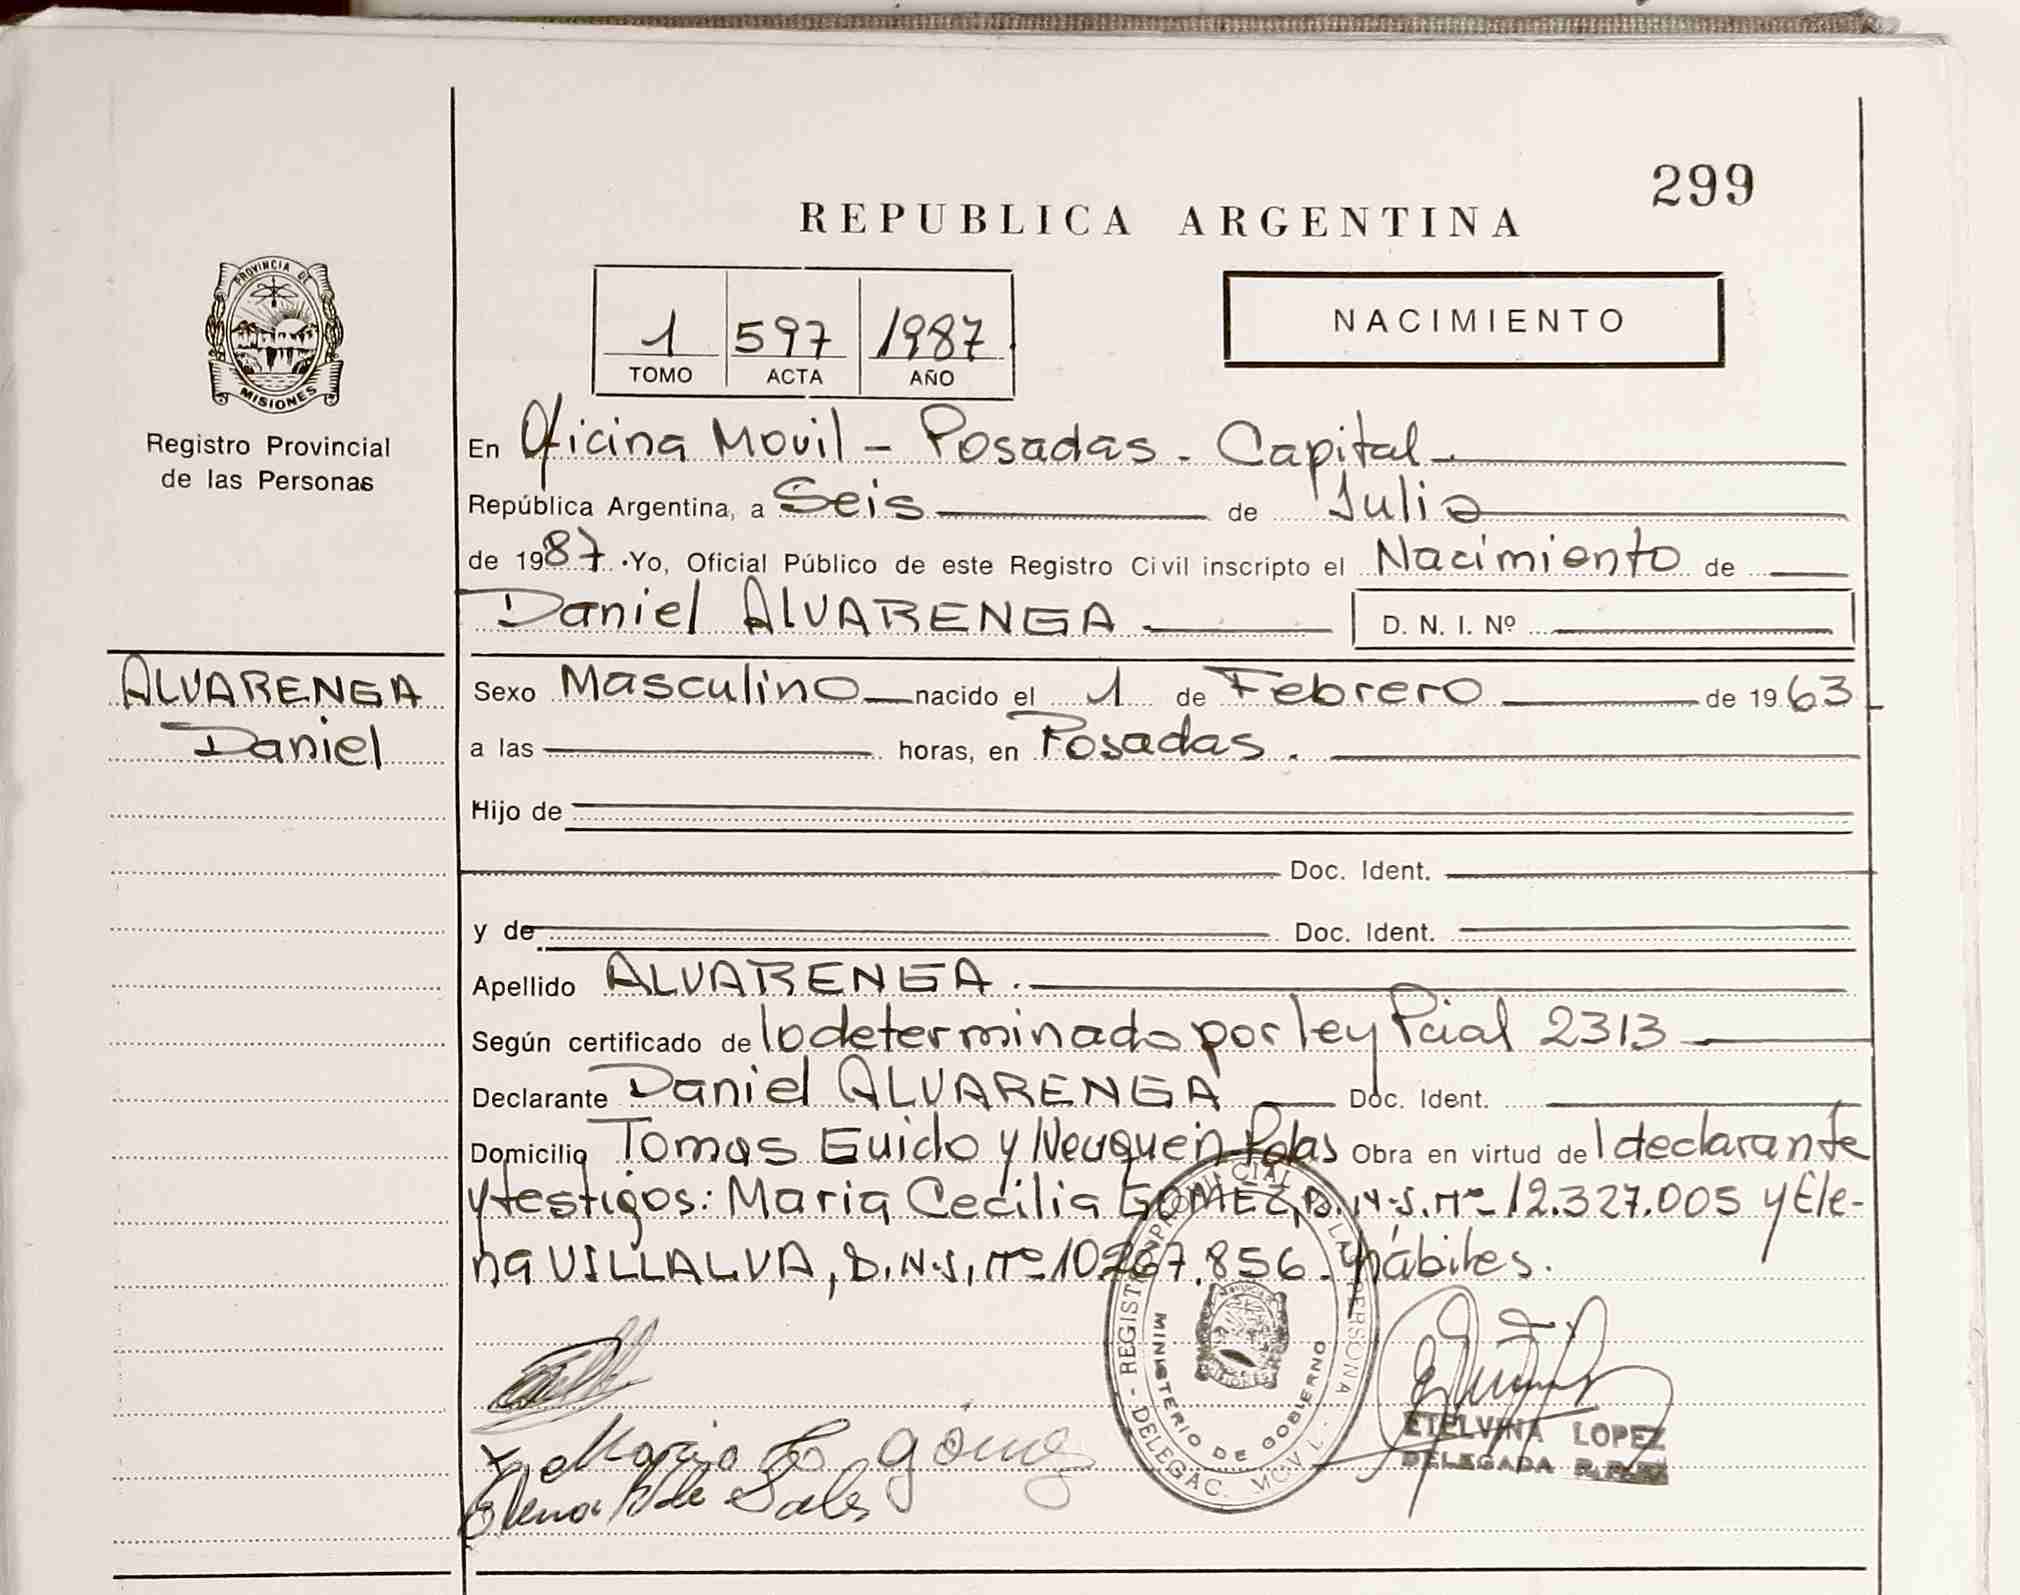 299
REPUBLICA ARGENTINA
PROVINCIA DE
MISIONES
Registro Provincial
de las Personas
1 597 1987
TOMO ACTA AÑO
NACIMIENTO
En Oficina Movil - Posadas - Capital
República Argentina, a Seis de Julio
de 1987. Yo, Oficial Público de este Registro Civil inscripto el Nacimiento de
Daniel ALVARENGA D. N. I. Nº
ALVARENGA
Daniel
Sexo Masculino nacido el 1 de Febrero de 1963
a las horas, en Posadas.
Hijo de
Doc. Ident.
y de Doc. Ident.
Apellido ALVARENGA.
Según certificado de lo determinado por ley Pcial 2313
Declarante Daniel ALVARENGA Doc. Ident.
Domicilio Tomas Guido y Neuquen Pdas Obra en virtud de l declarante
y testigos: Maria Cecilia GOMEZ, D.N.I. Nº 12.327.005 y Ele-
na VILLALVA, D.N.I, Nº 10267.856. hábiles.
REGISTRO PROVINCIAL DE LAS PERSONAS
MINISTERIO DE GOBIERNO
DELEGAC. MOVIL
Maria C Gómez
Elena de
ETELVINA LOPEZ
DELEGADA